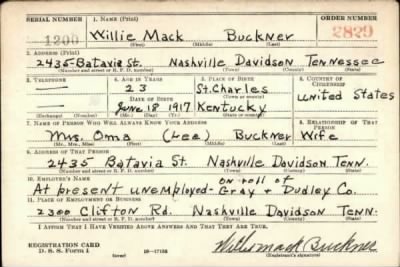 SERIAL NUMBER 1. NAME (Print) ORDER NUMBER
1200 Willie Mack Buckner 2829
(First) (Middle) (Last)
2. ADDRESS (Print)
2435 Batavia St. Nashville Davidson Tennessee
(Number and street or R. F. D. number) (Town) (County) (State)
3. TELEPHONE 4. AGE IN YEARS 5. PLACE OF BIRTH 6. COUNTRY OF CITIZENSHIP
23 St. Charles United States
DATE OF BIRTH (Town or county)
June 18 1917 Kentucky
(Exchange) (Number) (Mo.) (Day) (Yr.) (State or country)
7. NAME OF PERSON WHO WILL ALWAYS KNOW YOUR ADDRESS 8. RELATIONSHIP OF THAT PERSON
Mrs. Oma (Lee) Buckner Wife
(Mr., Mrs., Miss) (First) (Middle) (Last)
9. ADDRESS OF THAT PERSON
2435 Batavia St. Nashville Davidson Tenn.
(Number and street or R. F. D. number) (Town) (County) (State)
10. EMPLOYER'S NAME
At present unemployed - on roll of Gray & Dudley Co.
11. PLACE OF EMPLOYMENT OR BUSINESS
2300 Clifton Rd. Nashville Davidson Tenn.
(Number and street or R. F. D. number) (Town) (County) (State)
I AFFIRM THAT I HAVE VERIFIED ABOVE ANSWERS AND THAT THEY ARE TRUE.
REGISTRATION CARD
D. S. S. Form 1 16—17105 Willie mack Buckner
(over) (Registrant's signature)